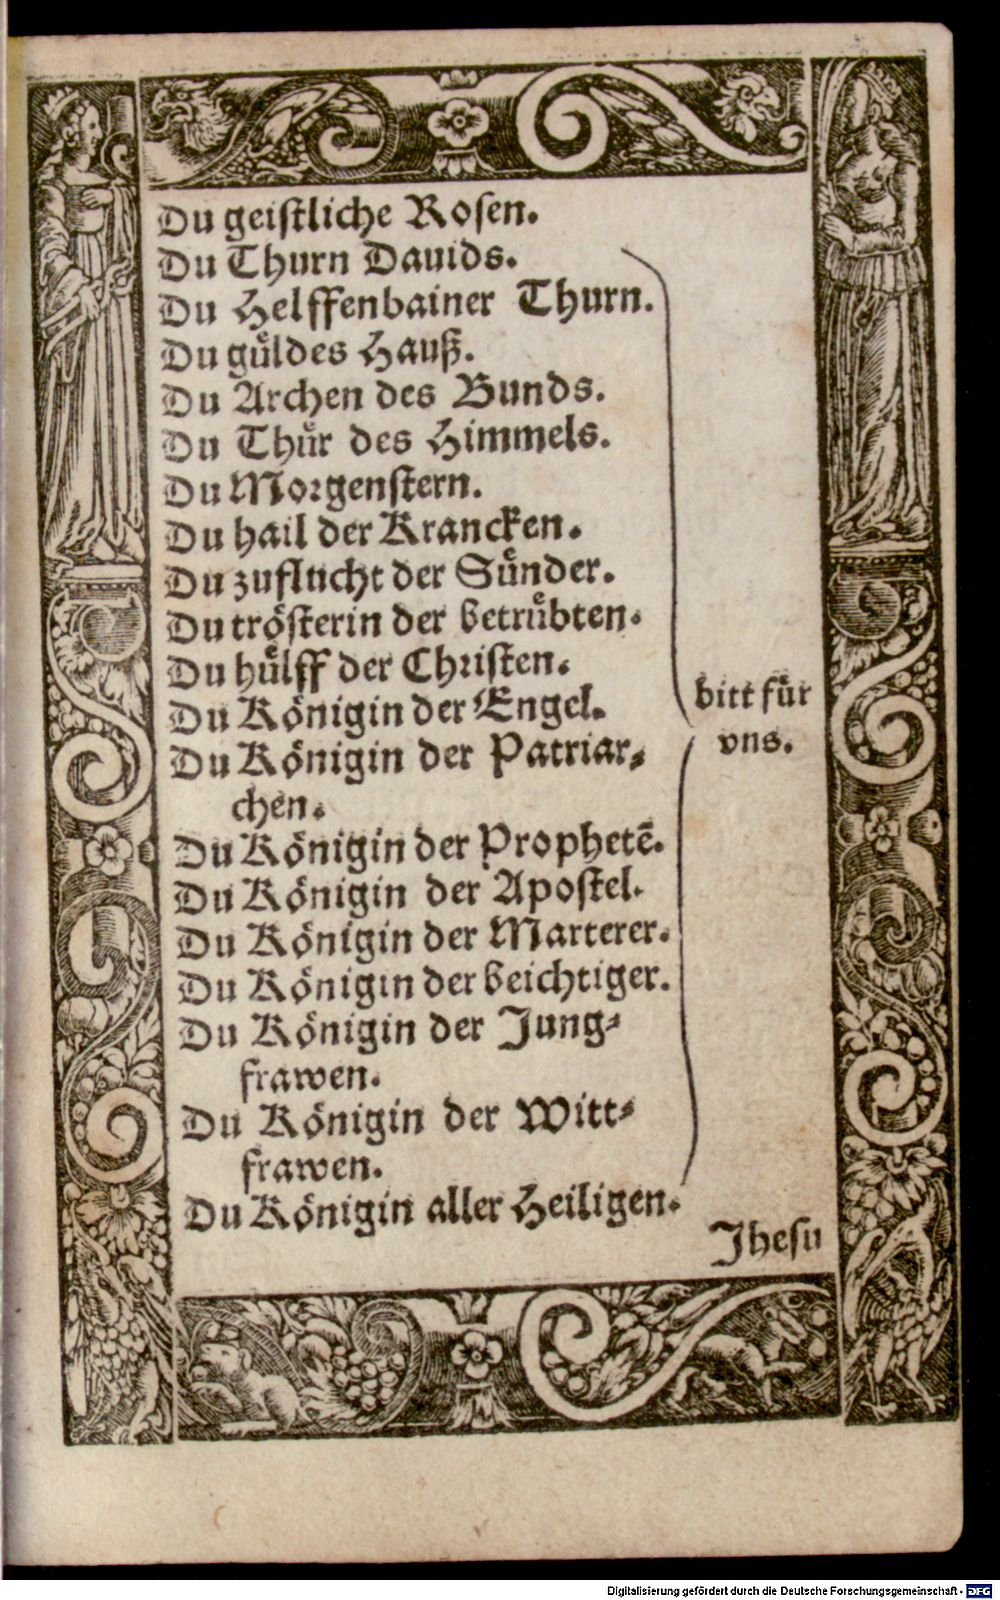 Du geiſtliche Roſen.
Du Thurn Dauids.
Du Helffenbainer Thurn.
Du guͤldes Hauß.
Du Archen des Bunds.
Du Thuͤr des Himmels.
Du Morgenſtern.
Du hail der Krancken.
Du zuflucht der Suͤnder.
Du troͤſterin der betruͤbten.
Du huͤlff der Chriſten.
Du Koͤnigin der Engel.
Du Koͤnigin der Patriar⸗
chen.
Du Koͤnigin der Prophetē.
Du Koͤnigin der Apoſtel.
Du Koͤnigin der Marterer.
Du Koͤnigin der beichtiger.
Du Koͤnigin der Jung⸗
frawen.
Du Koͤnigin der Witt⸗
frawen.
Du Koͤnigin aller Heiligen.
bitt fuͤr
vns.
Jheſu
Digitalisierung gefördert durch die Deutsche Forschungsgemeinschaft - DFG